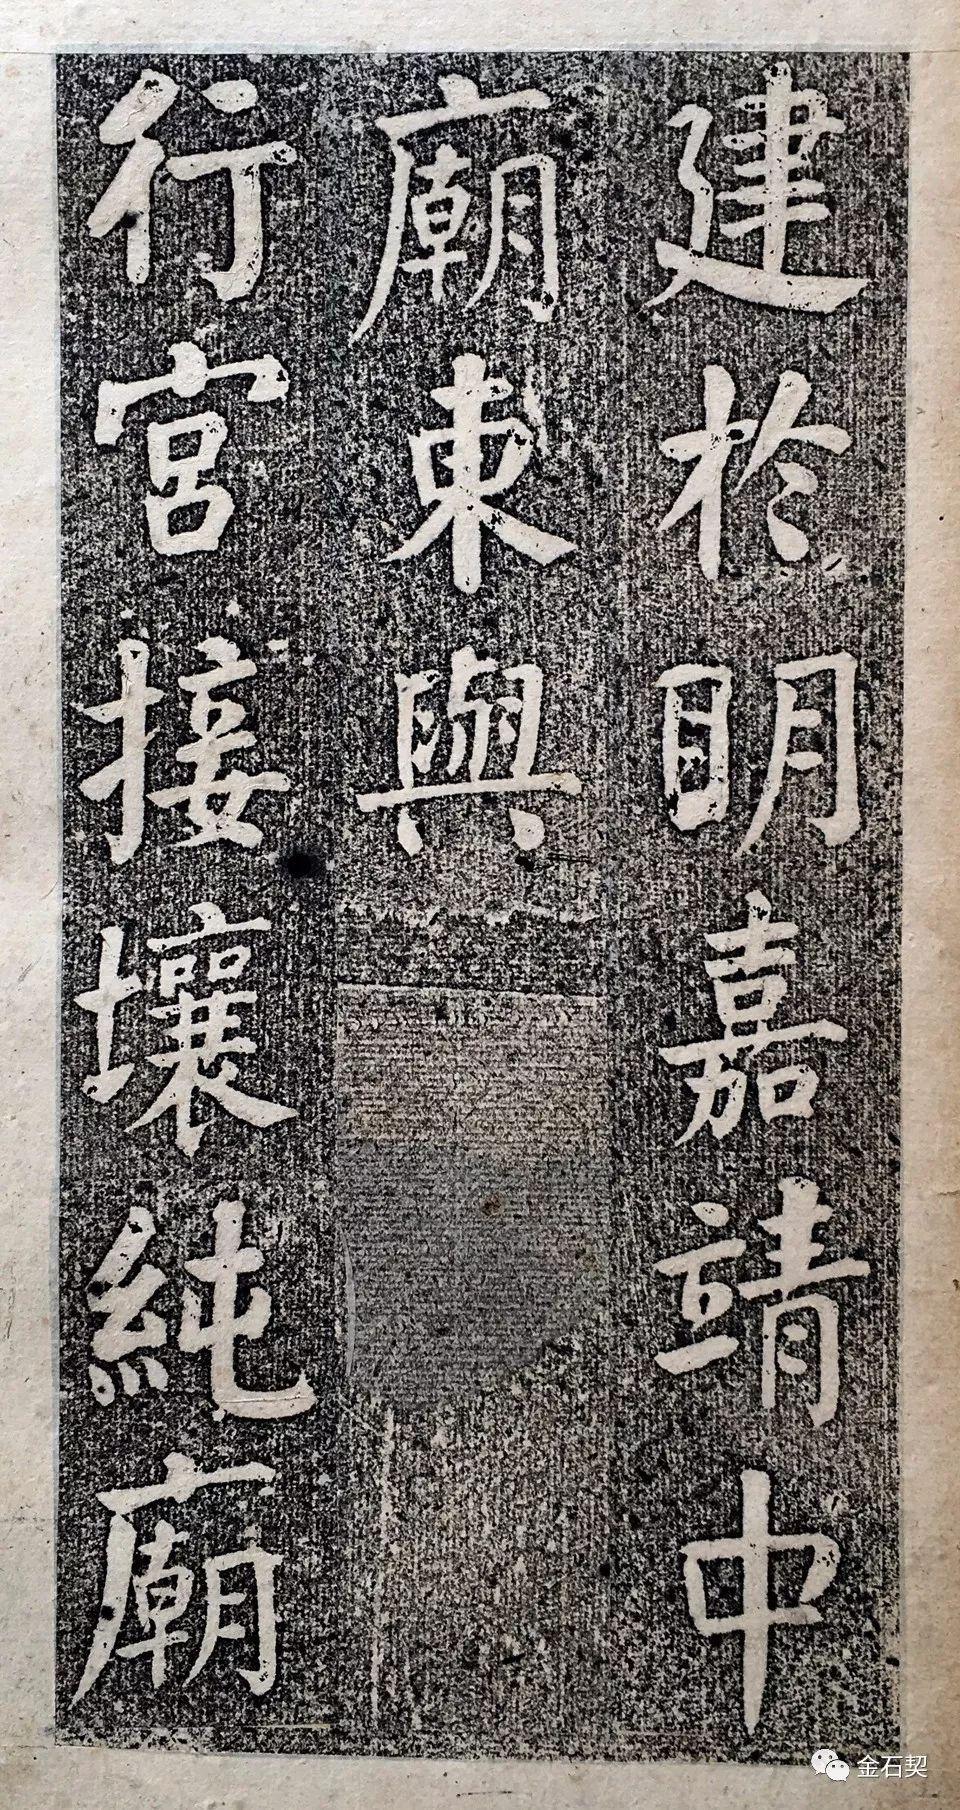 建於明嘉靖中
廟東與
行宮接壤純廟
金石契